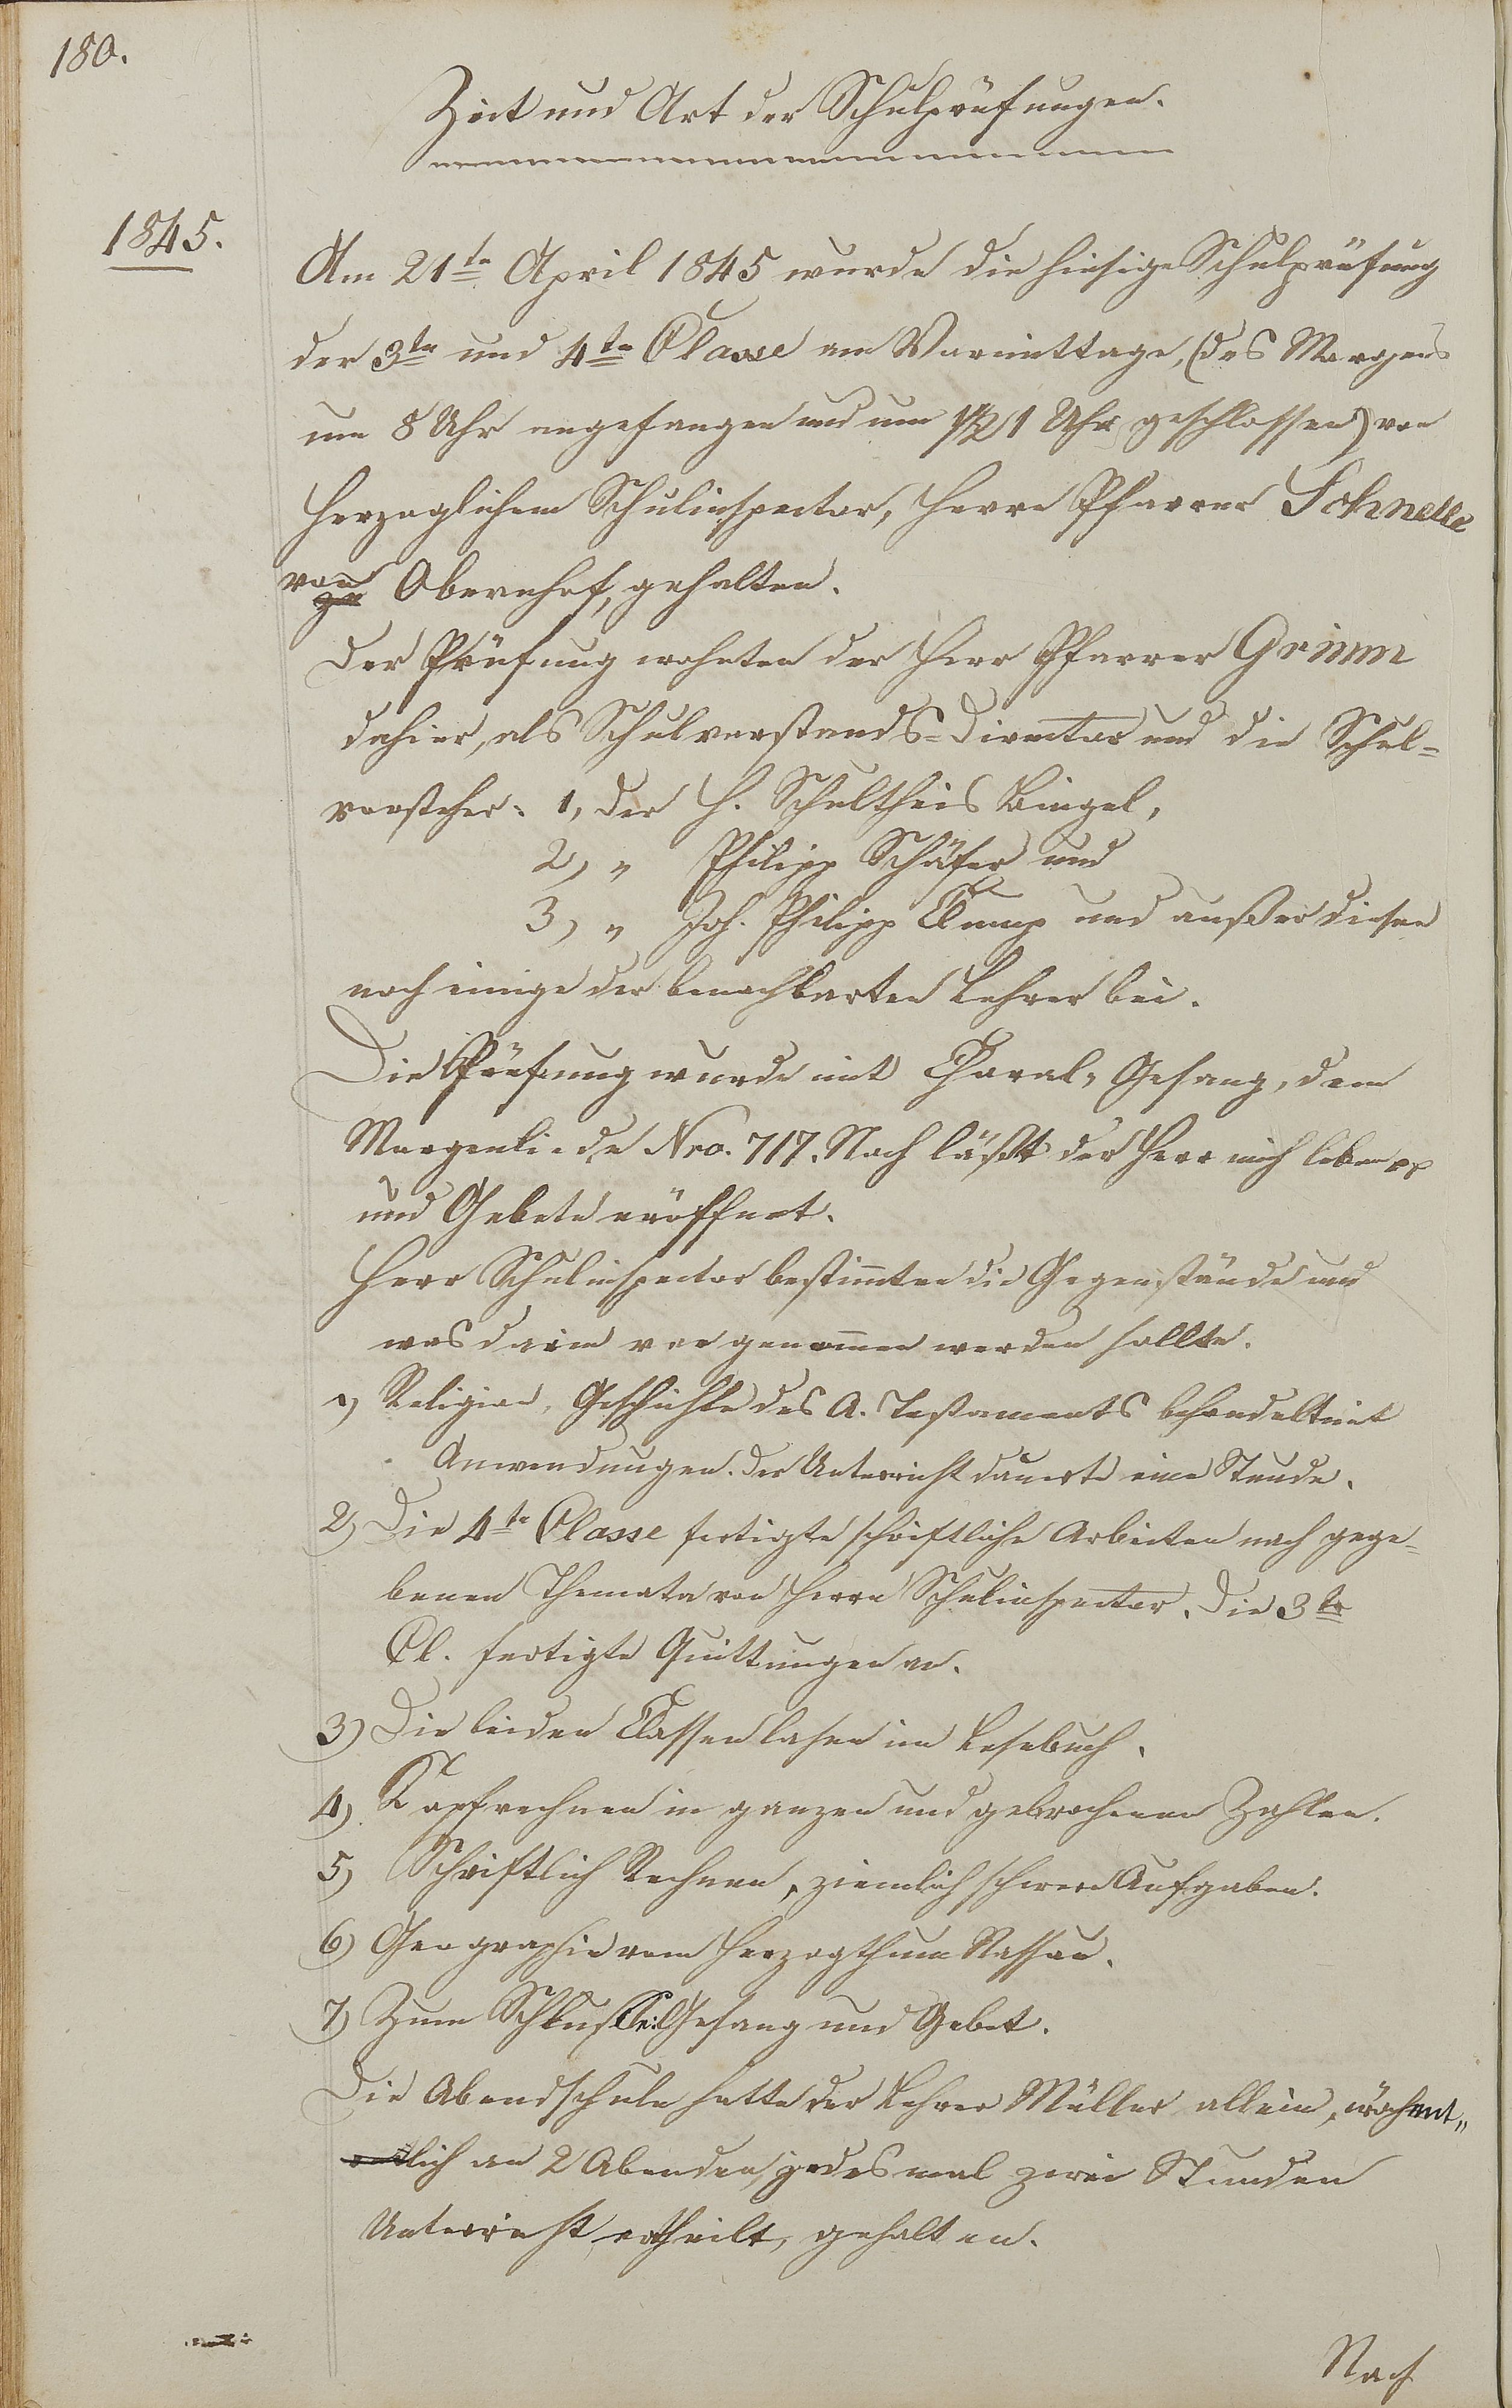 180.
Zeit und Art der Schulprüfungen.
1845.
Am 21ten April 1845 wurde die hiesige Schulprüfung
der 3ten und 4ten Classe am Vormittage, (des Morgens
um 8 Uhr angefangen und um 1/2 1 Uhr geschlossen) von
Herzoglichem Schulinspector, Herrn Pfarrer Schnelle
von Obernhof, gehalten.
Der Prüfung wohnten der Herr Pfarrer Grimm
dahier, als Schulvorstands-Director und die Schul-
vorsteher: 1, der H. Schultheis Bingel,
2, " Philipp Schäfer und
3, " Joh. Philipp Clump und außer diesen
noch einige der benachbarten Lehrer bei.
Die Prüfung wurde mit Choral-Gesang, dem
Morgenliede Nro. 717. Noch läßt der Herr mich leben pp
und Gebete eröffnet.
Herr Schulinspector bestimmten die Gegenstände und
was darin vorgenommen werden sollte.
1) Religion, Geschichte des A. Testaments behandelt mit
Anwendungen. Der Unterricht dauerte eine Stunde.
2) Die 4te Classe fertigte schriftliche Arbeiten nach gege-
benen Themata von Herrn Schulinspector. Die 3te
Cl. fertigte Quittungen an.
3) Die beiden Classen lasen im Lesebuch.
4) Kopfrechnen in ganzen und gebrochenen Zahlen.
5) Schriftlich Rechnen, ziemlich schwere Aufgaben.
6) Geographie vom Herzogthum Nassau.
7) Zum Schlusse: Gesang und Gebet.
Die Abendschule hatte der Lehrer Müller allein, wöchent„
lich an 2 Abenden, jedesmal zwei Stunden
Unterricht ertheilt, gehalten.
Nach